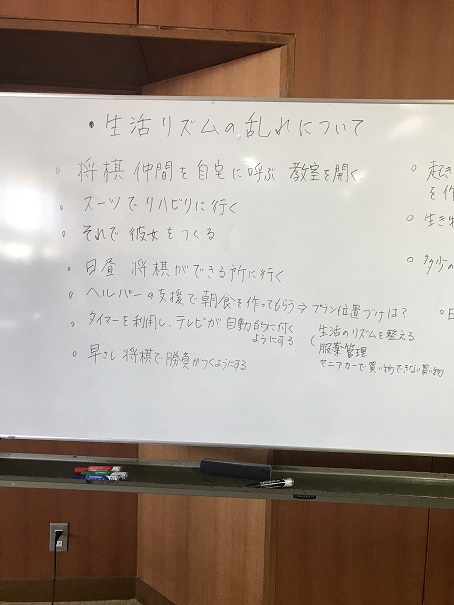 ・生活リズムの乱れについて
○ 将棋仲間を自宅に呼ぶ 教室を開く
○ スーツでリハビリに行く
○ それで彼女をつくる
○ 日昼 将棋ができる所に行く
○ ヘルパーの支援で朝食を作ってもらう→プラン位置づけは?
○ タイマーを利用し、テレビが自動的に付く
ようにする
(生活のリズムを整える
服薬管理
マニアカーで買い物できない買い物
○ 早さし将棋で勝負がつくようにする
○ 起き
を作
○ 生き物
○ 多少の
○ 日